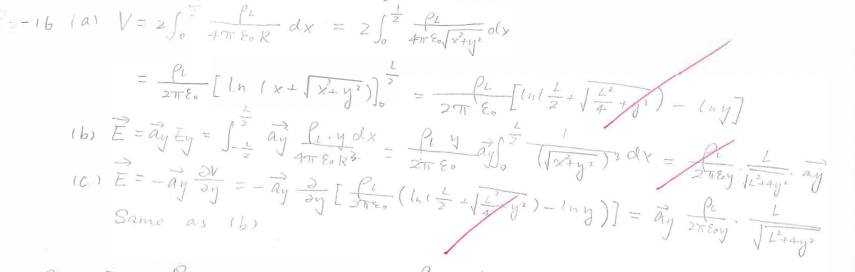 -16 (a) V = 2∫₀^{L/2} ρ_L/(4πε₀R) dx = 2∫₀^{L/2} ρ_L/(4πε₀√(x²+y²)) dx
= ρ_L/(2πε₀) [ln(x+√(x²+y²))]₀^{L/2} = ρ_L/(2πε₀) [ln(L/2+√(L²/4+y²)) - lny]
(b) E⃗ = a⃗y Ey = ∫_{-L/2}^{L/2} a⃗y ρ_L·y dx/(4πε₀R³) = ρ_L y/(2πε₀) a⃗y∫₀^{L/2} 1/(√(x²+y²))³ dx = ρ_L/(2πε₀y) · L/√(L²+4y²) · a⃗y
(c) E⃗ = -a⃗y ∂V/∂y = -a⃗y ∂/∂y [ρ_L/(2πε₀) (ln(L/2+√(L²/4+y²)) - lny)] = a⃗y ρ_L/(2πε₀y) · L/√(L²+4y²)
Same as (b)